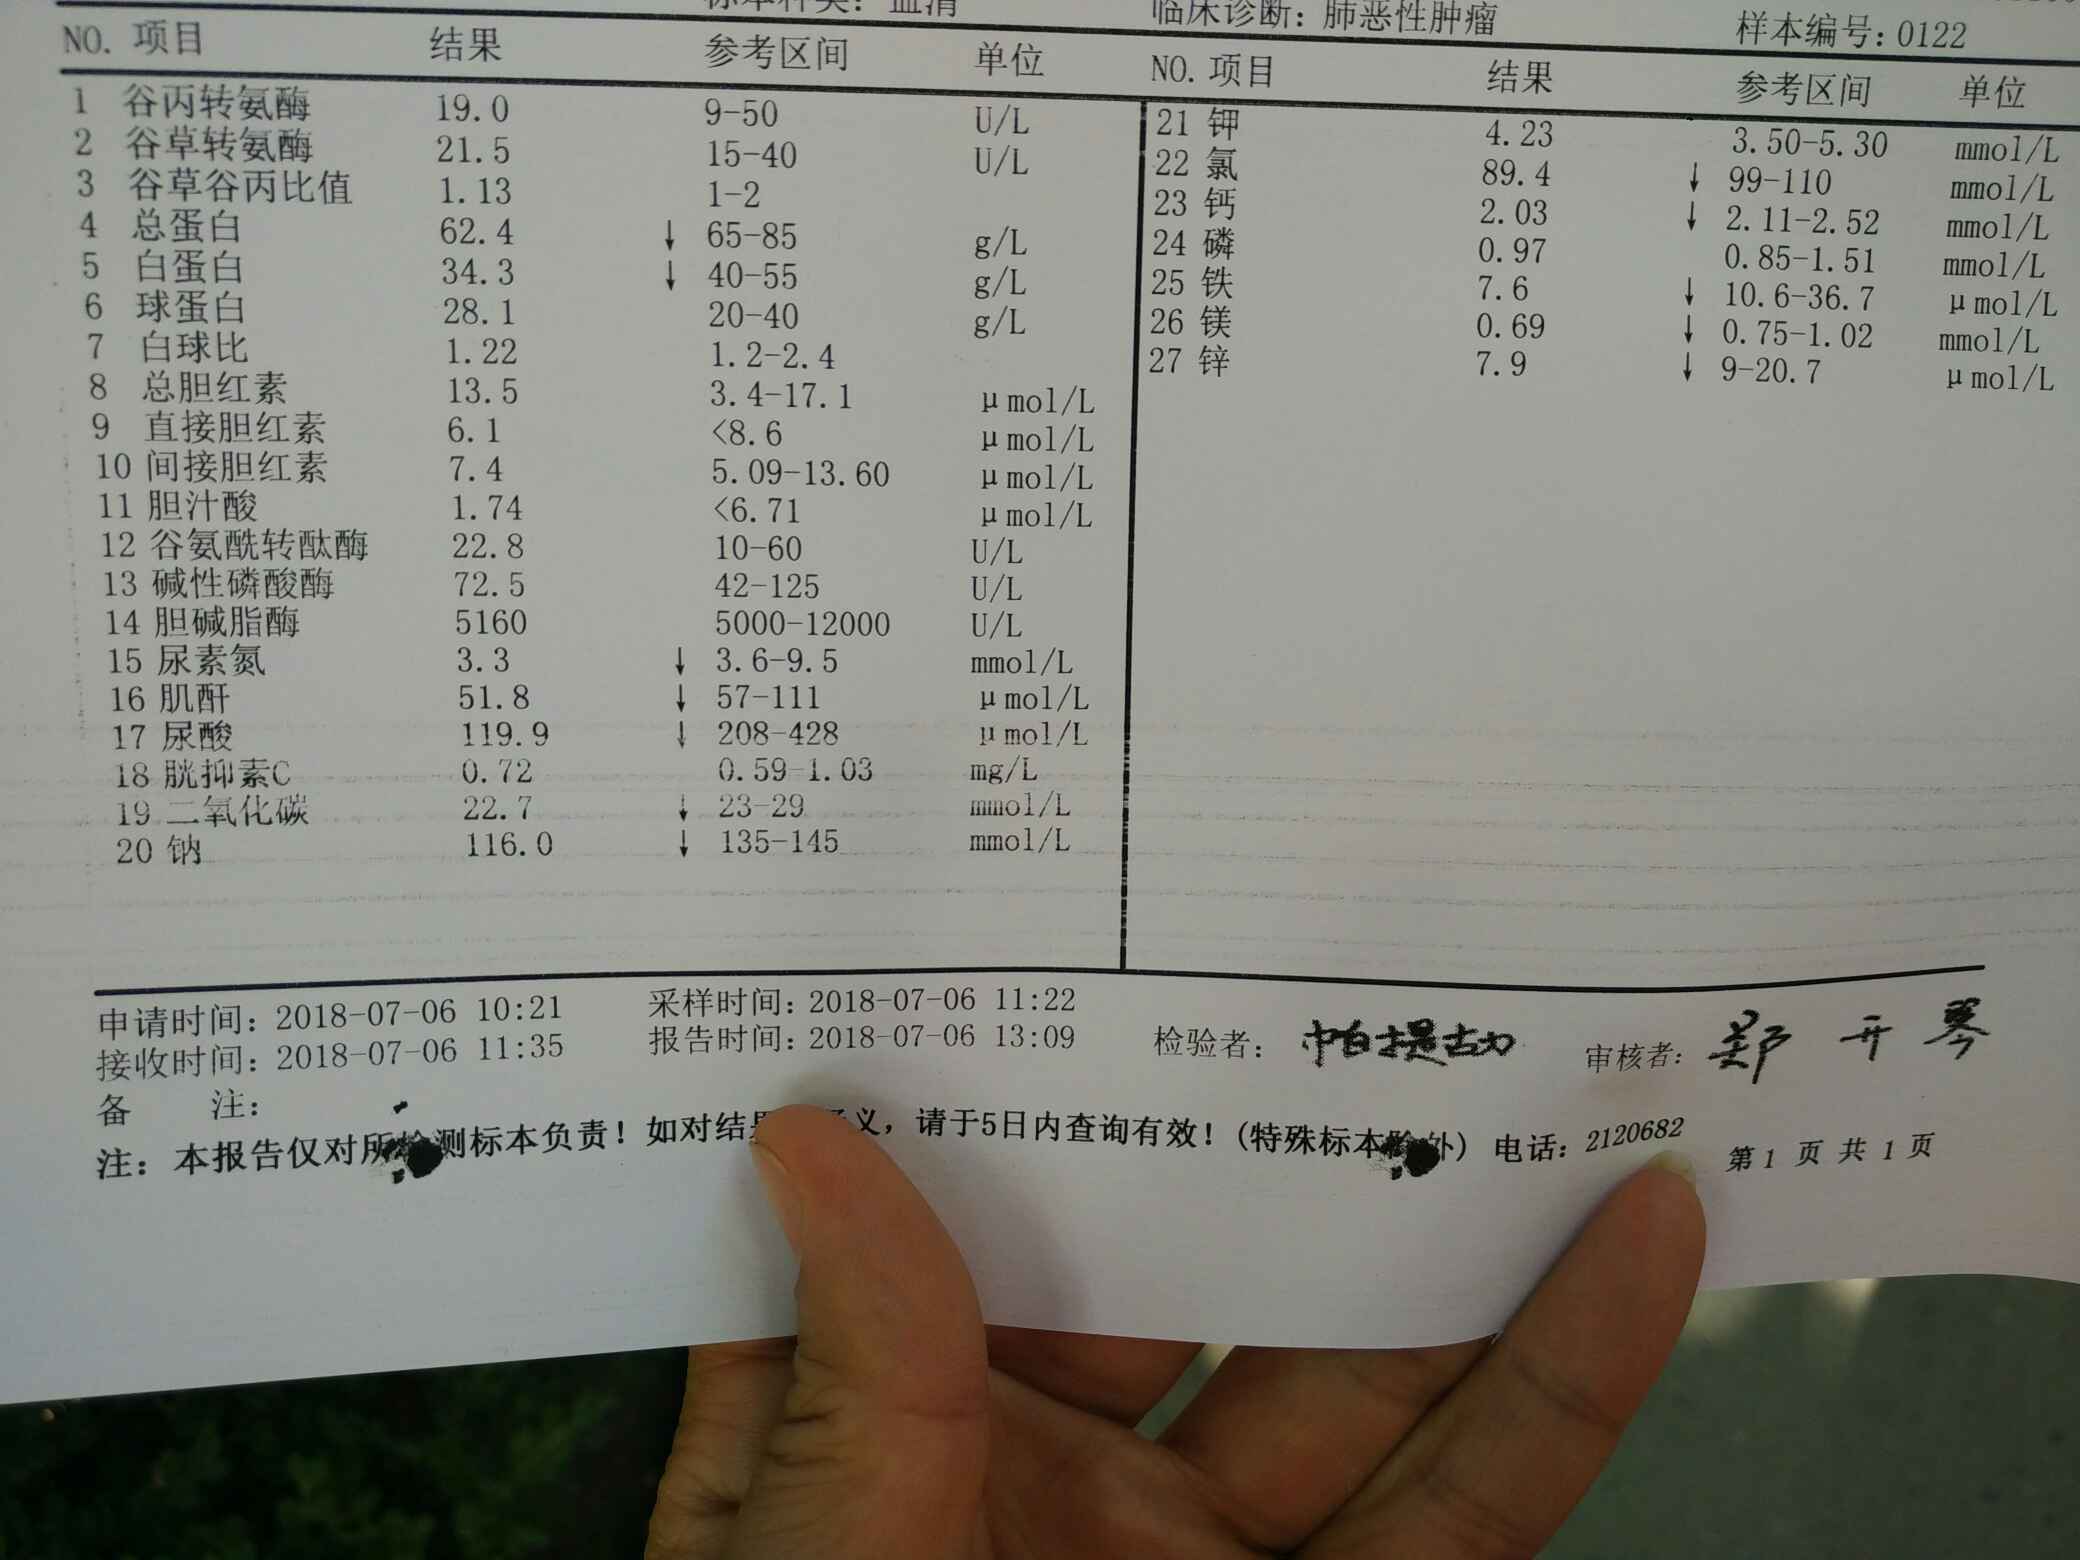 标本种类: 血清 临床诊断: 肺恶性肿瘤 样本编号: 0122
NO. 项目 结果 参考区间 单位 NO. 项目 结果 参考区间 单位
1 谷丙转氨酶 19.0 9-50 U/L
2 谷草转氨酶 21.5 15-40 U/L
3 谷草谷丙比值 1.13 1-2
4 总蛋白 62.4 ↓ 65-85 g/L
5 白蛋白 34.3 ↓ 40-55 g/L
6 球蛋白 28.1 20-40 g/L
7 白球比 1.22 1.2-2.4
8 总胆红素 13.5 3.4-17.1 μmol/L
9 直接胆红素 6.1 <8.6 μmol/L
10 间接胆红素 7.4 5.09-13.60 μmol/L
11 胆汁酸 1.74 <6.71 μmol/L
12 谷氨酰转酞酶 22.8 10-60 U/L
13 碱性磷酸酶 72.5 42-125 U/L
14 胆碱脂酶 5160 5000-12000 U/L
15 尿素氮 3.3 ↓ 3.6-9.5 mmol/L
16 肌酐 51.8 ↓ 57-111 μmol/L
17 尿酸 119.9 ↓ 208-428 μmol/L
18 胱抑素C 0.72 0.59-1.03 mg/L
19 二氧化碳 22.7 ↓ 23-29 mmol/L
20 钠 116.0 ↓ 135-145 mmol/L
21 钾 4.23 3.50-5.30 mmol/L
22 氯 89.4 ↓ 99-110 mmol/L
23 钙 2.03 ↓ 2.11-2.52 mmol/L
24 磷 0.97 0.85-1.51 mmol/L
25 铁 7.6 ↓ 10.6-36.7 μmol/L
26 镁 0.69 ↓ 0.75-1.02 mmol/L
27 锌 7.9 ↓ 9-20.7 μmol/L
申请时间: 2018-07-06 10:21 采样时间: 2018-07-06 11:22
接收时间: 2018-07-06 11:35 报告时间: 2018-07-06 13:09 检验者: 帕提古力 审核者: 郑开琴
备 注:
注: 本报告仅对所检测标本负责! 如对结果 义, 请于5日内查询有效! (特殊标本除外) 电话: 2120682 第 1 页 共 1 页